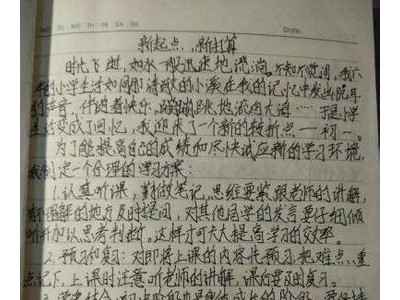 MO TU WE TH FR SA SU
Date.
新起点,新打算
时光飞逝,如水一般迅速地流淌。不知不觉间,我六
年的小学生活如同那清澈的小溪在我的记忆中发出阵阵
的声音,伴随着快乐,蹦蹦跳跳地流向大海……于是小学
生活变成了回忆,我迎来了一个新的转折点——初一。
为了能提高自己的成绩和尽快试应新的学习环境,
我制定一个合理的学习方案:
1.认真听课,勤做笔记,思维要紧跟老师的讲解,
有不理解的地方及时提问,对其他同学的发言要仔细倾
听并加以思考判断。这样才可大大提高学习的效率。
2.预习和复习:对即将上课的内容先预习,把难点、重
点记下,上课时注意听老师的讲解,课后要及时复习。
3.学考结合,初中阶段